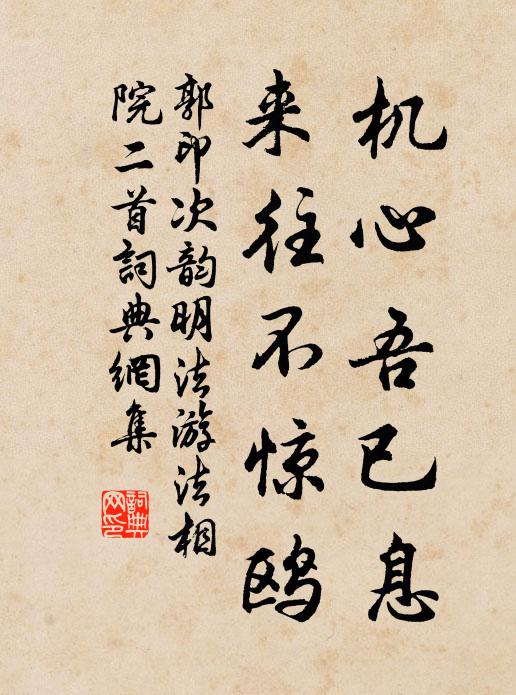 机心吾已息
来往不惊鸥
郭印次韵明法游法相
院二首詞典網集
詞典
网印